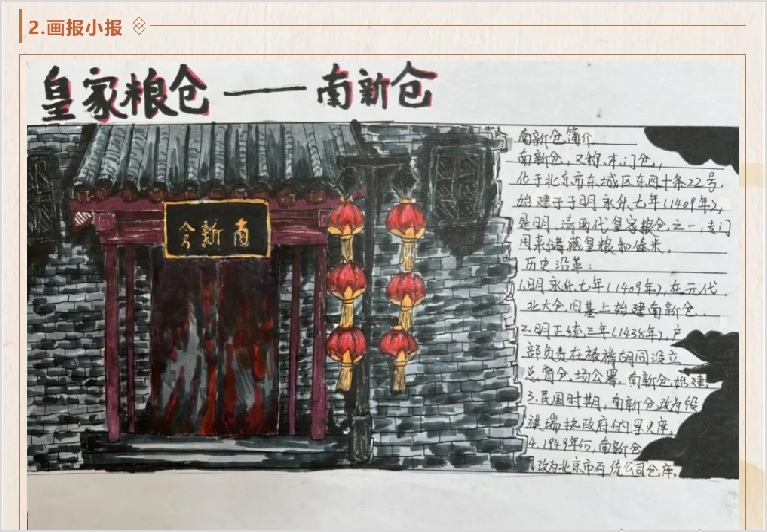 2.画报小报
皇家粮仓——南新仓
南新仓
南新仓简介
南新仓,又称东门仓,
位于北京市东城区东四十条22号,
始建于于明永乐七年(1409年),
是明、清两代皇家粮仓之一,专门
用来储藏皇粮和俸米。
历史沿革:
1.明永乐七年(1409年),在元代
北太仓旧基上始建南新仓。
2.明正统三年(1438年),户
部负责在旗檐胡同设立
总督仓场公署,南新仓始建
3.民国时期,南新仓改为段
祺瑞执政府的军火库
4.1949年后,南新仓
改为北京市百货公司仓库。